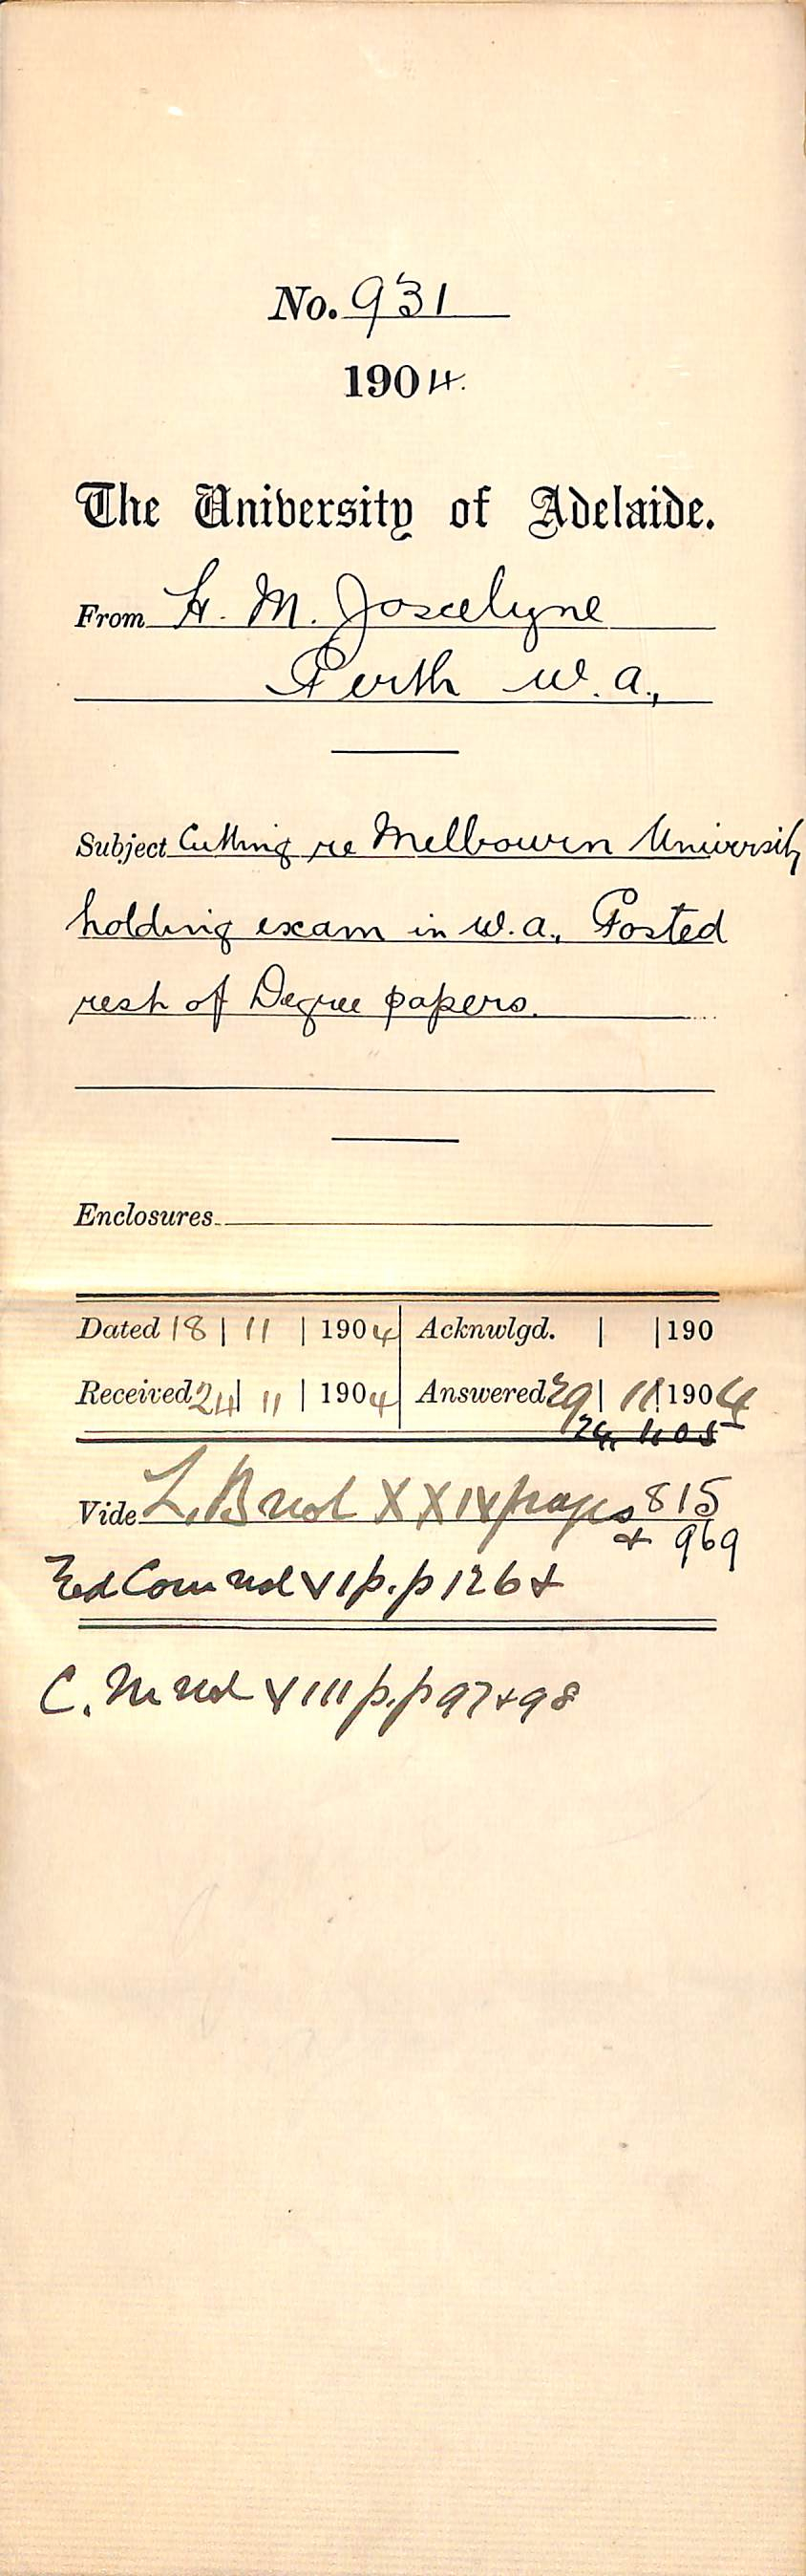 No. 931
1904.
The University of Adelaide.
From H. M. Joscelyne
Perth W.A.,
Subject Cutting re Melbourn University
holding exam in W.A., Posted
rest of Degree papers.
Enclosures
Dated 18 | 11 | 1904 Acknwlgd. | | 190
Received 24 | 11 | 1904 Answered 29 | 11 | 1904
24, 1. 05
Vide L. B vol XXIX pages 815
& 969
Ed Com vol VI p.p 126 &
C. M vol VIII p.p 97 & 98